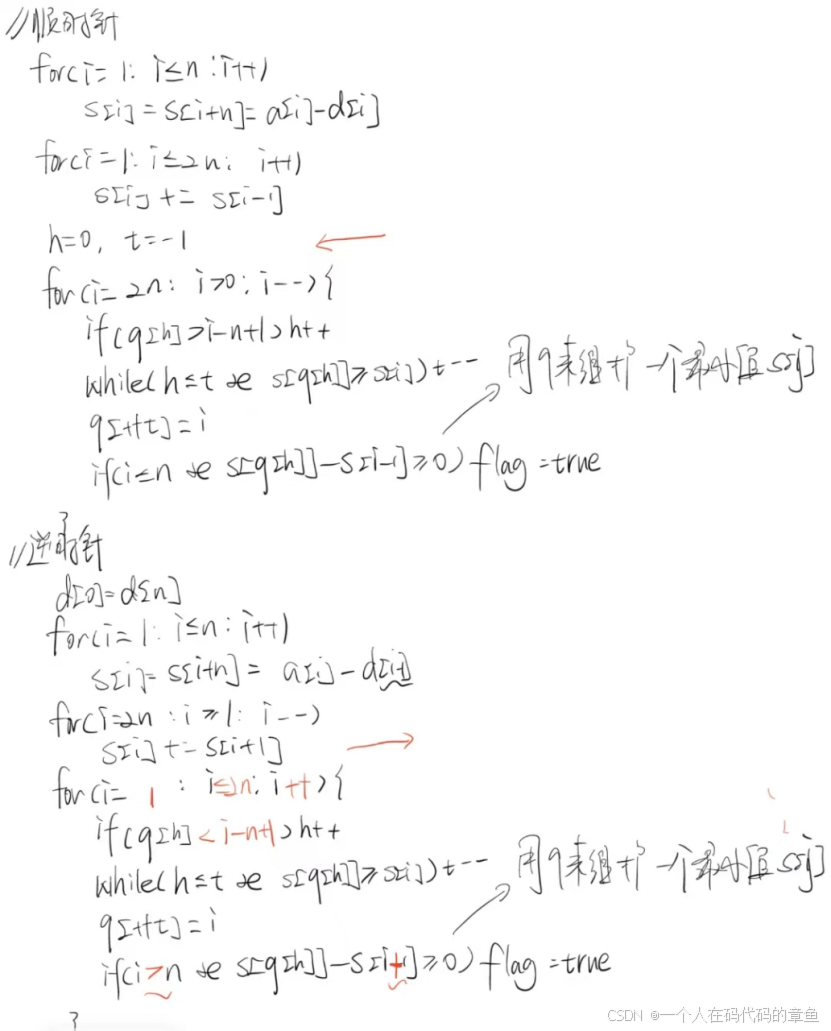 //顺时针
for(i=1: i≤n :i++)
s[i] = s[i+n]= a[i]-d[i]
for(i=1: i≤2n: i++)
s[i] += s[i-1]
h=0, t=-1
for(i=2n: i>0: i--){
if(q[h]>i-n+1)h++
while(h≤t && s[q[h]]≥s[i])t--
用q来维护一个最小值s[j]
q[++t]=i
if(i≤n && s[q[h]]-s[i-1]≥0) flag=true
//逆时针
d[0]=d[n]
for(i=1: i≤n: i++)
s[i]=s[i+n]= a[i]-d[i-1]
for(i=2n :i≥1: i--)
s[i] += s[i+1]
for(i=1 : i≤2n: i++){
if(q[h]<i-n+1)h++
while(h≤t && s[q[h]]≥s[i])t--
用q来维护一个最小值s[j]
q[++t]=i
if(i>n && s[q[h]]-s[i+1]≥0) flag=true
}
CSDN @一个人在码代码的章鱼